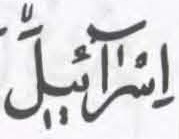 اِسْرَآئِيلَّ